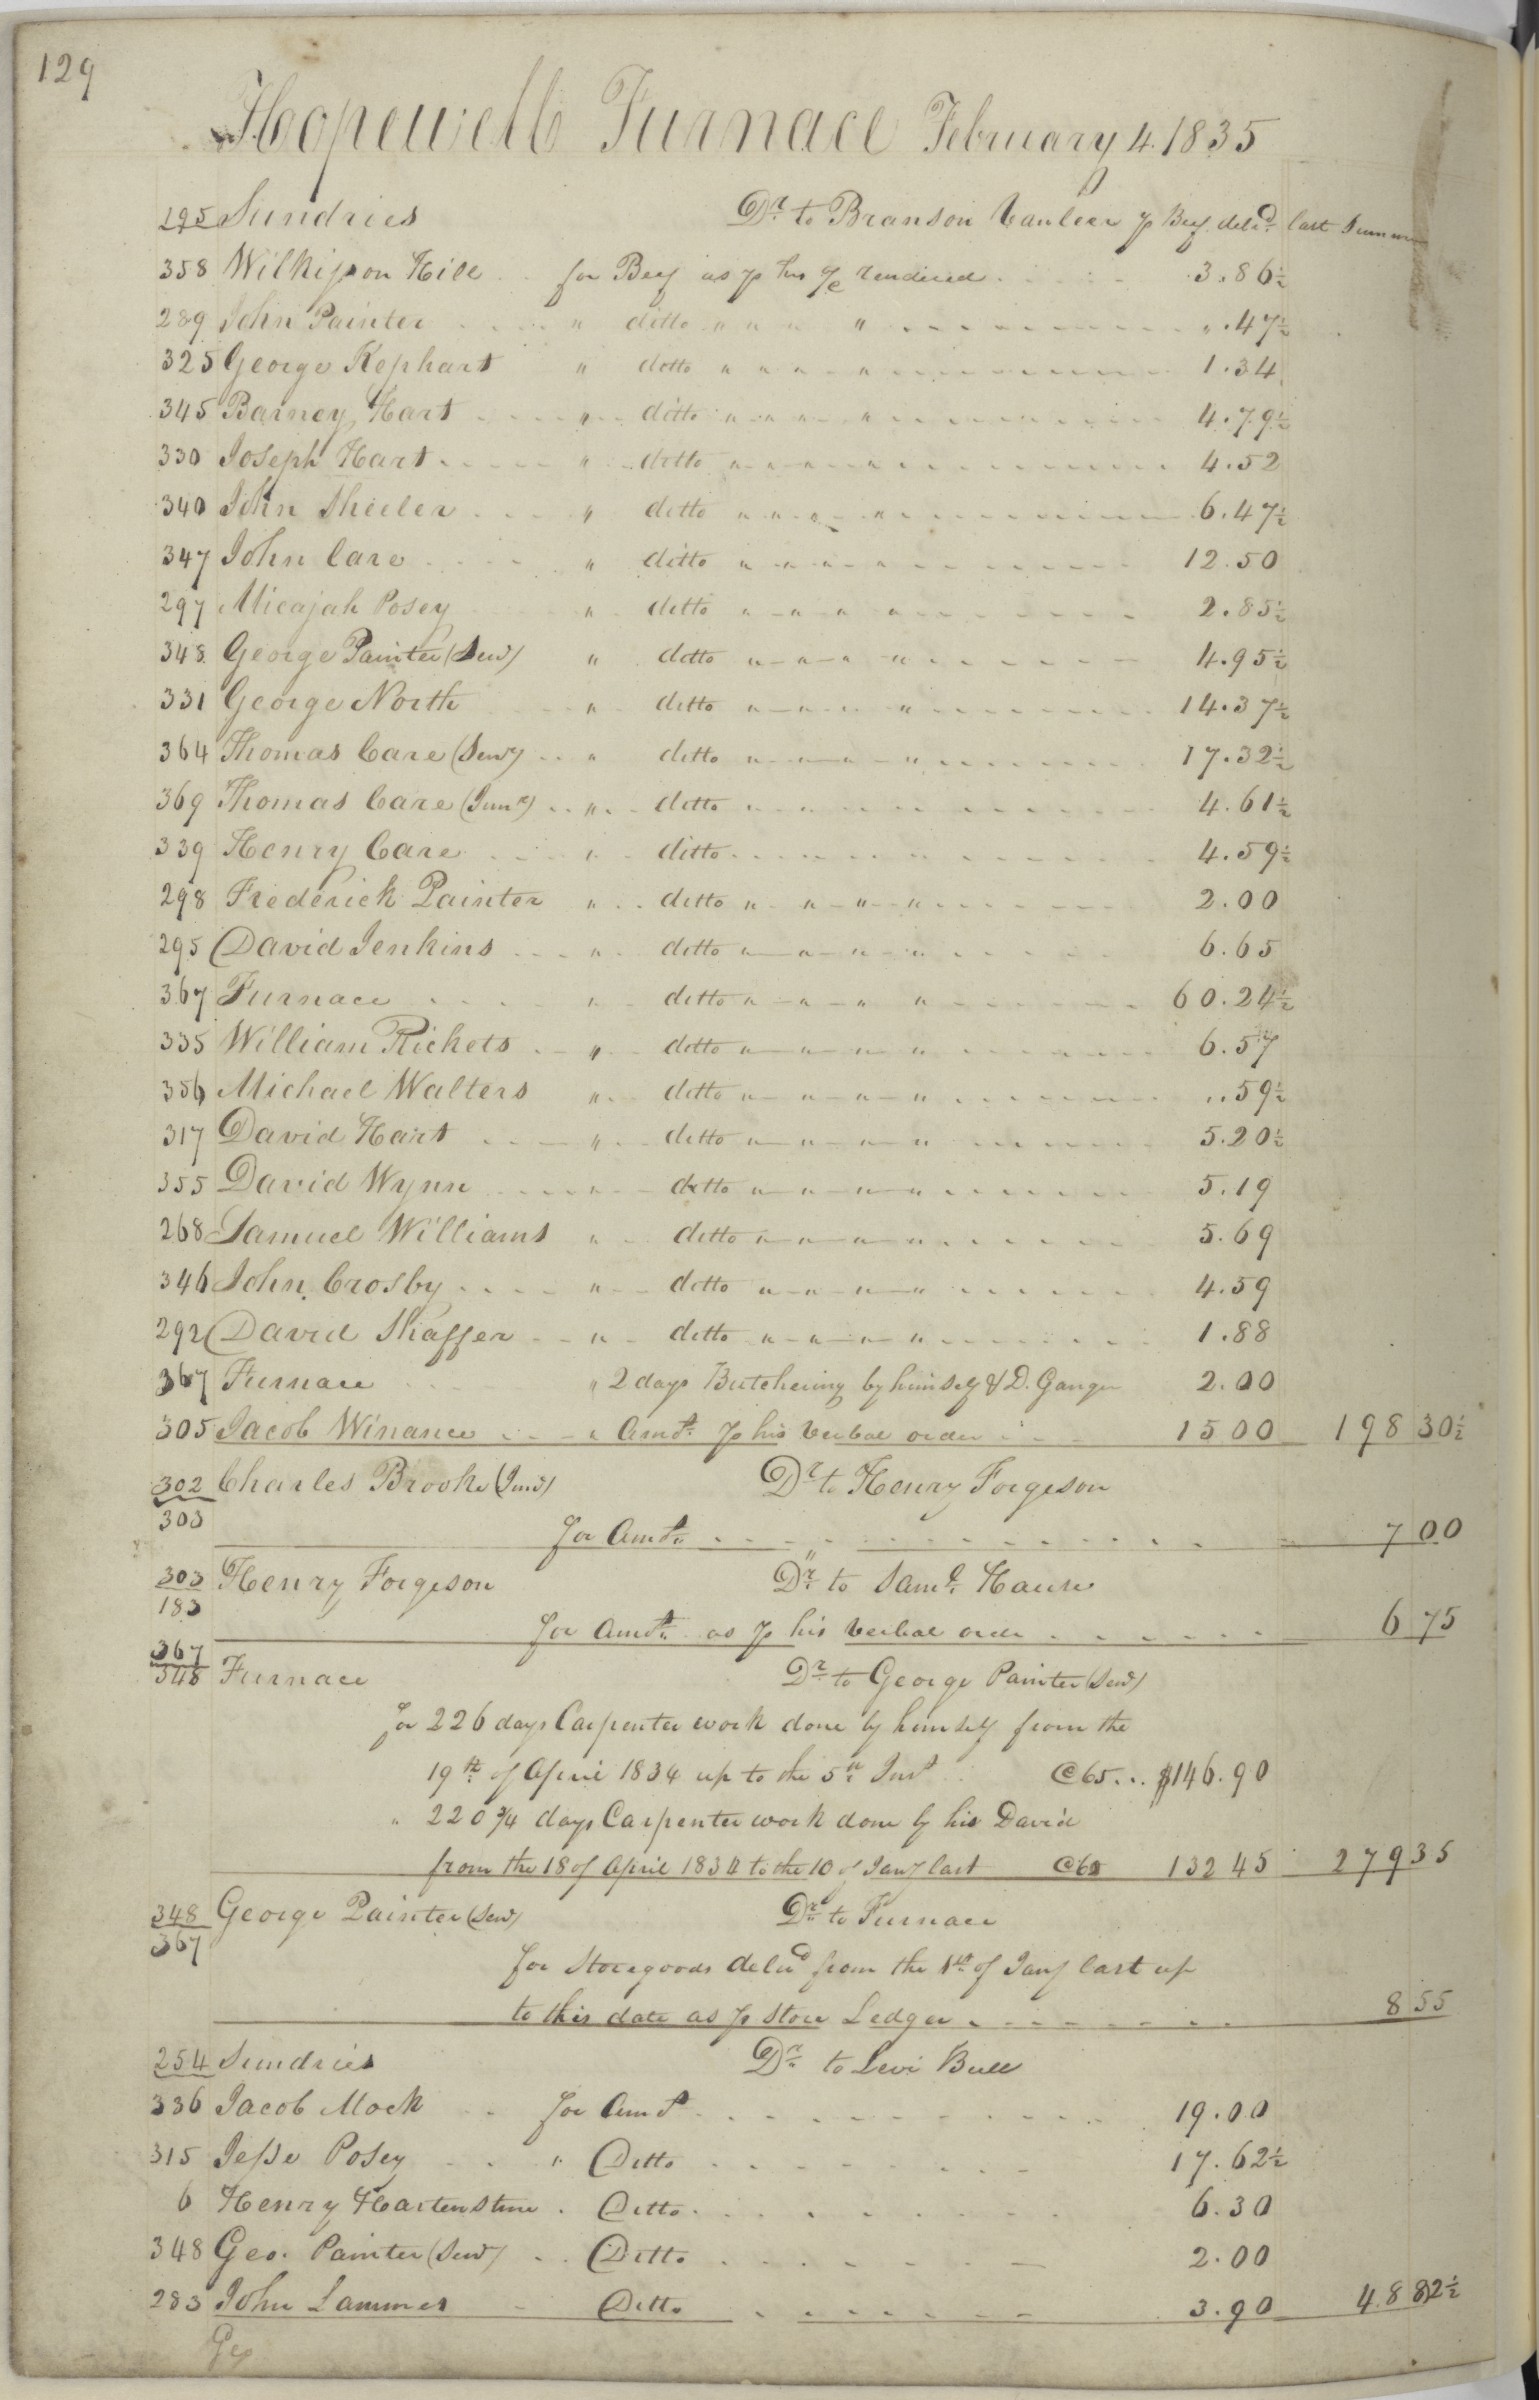 129
Hopewell Furnace February 4. 1835
195 Sundries Dr. to Branson Vanleer p Beef deld. last Summer
358 Wilkinson Hill for Beef as p his a/c rendered 3.86½
289 John Painter " ditto " " " " .47½
325 George Kephart " ditto " " " " 1.34
345 Barney Hart " ditto " " " " 4.79½
330 Joseph Hart " ditto " " " " 4.52
340 John Sheeler " ditto " " " " 6.47½
347 John Care " ditto " " " " 12.50
297 Micajah Posey " ditto " " " " 2.85½
348 George Painter (Senr) " ditto " " " " 4.95½
331 George North " ditto " " " " 14.37½
364 Thomas Care (Senr) " ditto " " " " 17.32½
369 Thomas Care (Junr) " ditto 4.61½
339 Henry Care " ditto 4.59½
298 Frederick Painter " ditto " " " " 2.00
295 David Jenkins " ditto " " " " 6.65
367 Furnace " ditto " " " " 60.24½
335 William Rickets " ditto " " " " 6.57
356 Michael Walters " ditto " " " " .59½
317 David Hart " ditto " " " " 5.20½
355 David Wynn " ditto " " " " 5.19
268 Samuel Williams " ditto " " " " 5.69
346 John Crosby " ditto " " " " 4.59
292 David Shaffer " ditto " " " " 1.88
367 Furnace " 2 days Butchering by himself & D. Ganger 2.00
305 Jacob Winance " Amt. p his verbal order 15 00 198 30½
302 Charles Brooke (Junr) Dr to Henry Forgeson
303
for Amt. 7 00
303 Henry Forgeson Dr. to Saml. Hause
183
for Amt. as p his verbal order 6 75
367
348 Furnace Dr. to George Painter (Senr)
for 226 days Carpenter work done by himself from the
19th. of April 1834 up to the 5th. Inst @65... $146.90
" 220 3/4 days Carpenter work done by his David
from the 18 of April 1834 to the 10 of Jany last @60 132 45 279 35
348 George Painter (Senr) Dr. to Furnace
367
for Storegoods deld from the 1st. of Jany last up
to this date as p Store Ledger 8 55
254 Sundries Dr. to Levi Bull
336 Jacob Mock for Amt 19.00
315 Jesse Posey " Ditto 17.62½
6 Henry Hartenstine Ditto 6.30
348 Geo. Painter (Senr) Ditto 2.00
283 John Lammes Ditto 3.90 48 82½